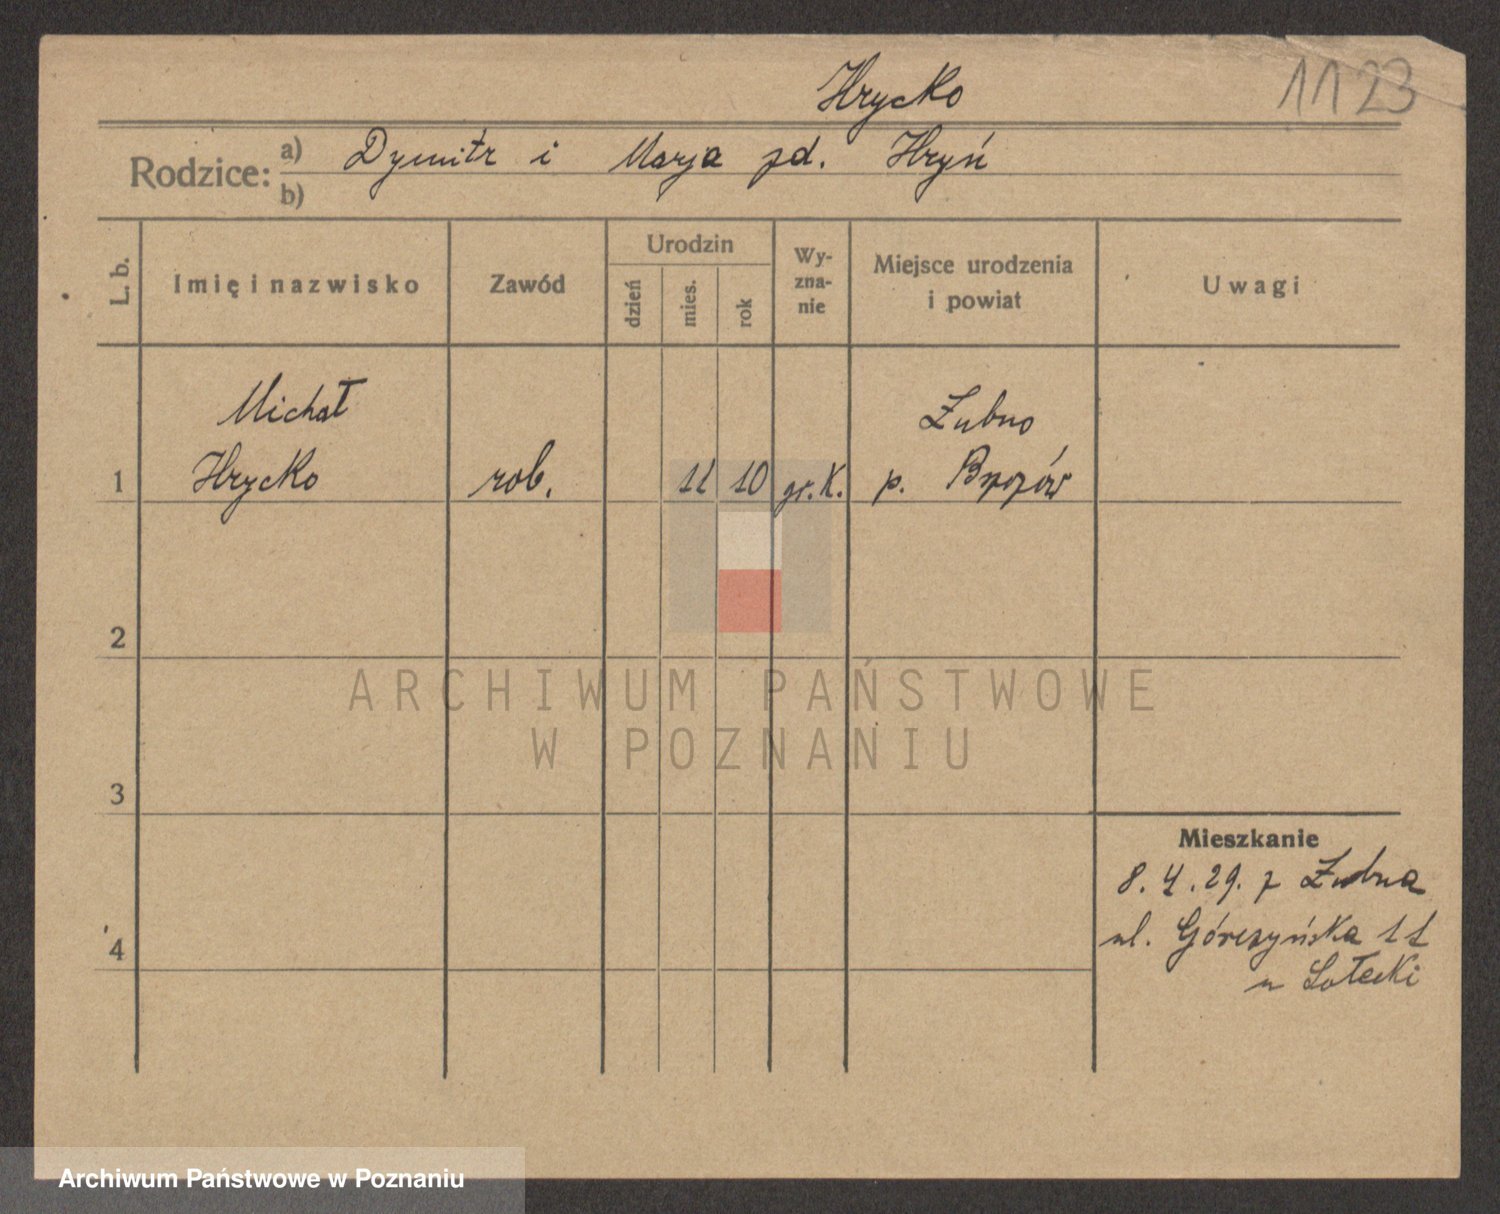 Hrycko
1123
Rodzice: a) Dymitr i Marja zd. Hryń
b)
L. b.
Imię i nazwisko
Zawód
Urodzin
dzień
mies.
rok
Wy-
zna-
nie
Miejsce urodzenia
i powiat
Uwagi
Michał
Hrycko
1
rob.
11
10
gr. K.
Łubno
p. Brzozów
2
3
4
Mieszkanie
8. 4. 29. z Łubna
ul. Górczyńska 11
u Sołecki
ARCHIWUM PAŃSTWOWE
W POZNANIU
Archiwum Państwowe w Poznaniu